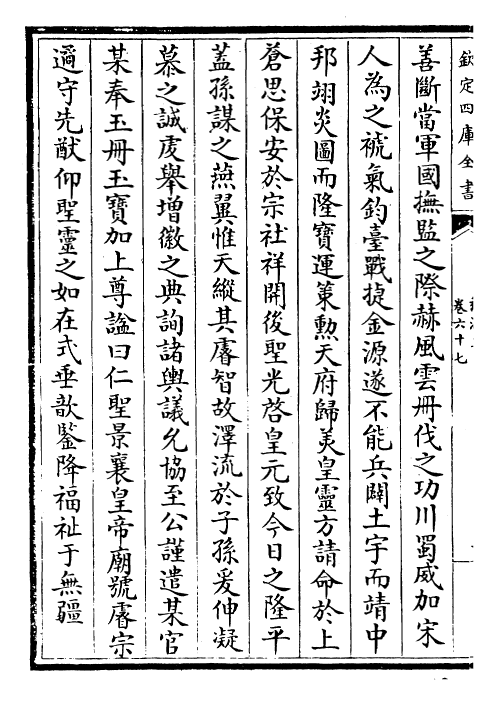 欽定四庫全書
卷六十七
善斷當軍國撫監之際赫風雲冊伐之功川蜀威加宋
人為之禠氣鈞臺戰捷金源遂不能兵闢土宇而靖中
邦翊炎圖而隆寶運策勲天府歸美皇靈方請命於上
蒼思保安於宗社祥開後聖光啓皇元致今日之隆平
蓋孫謀之燕翼惟天縱其睿智故澤流於子孫爰伸凝
慕之誠虔舉增徽之典詢諸輿議允協至公謹遣某官
某奉玉冊玉寶加上尊諡曰仁聖景襄皇帝廟號睿宗
遹守先猷仰聖靈之如在式垂歆鑒降福祉于無疆